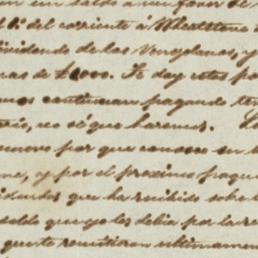 un saldo a su favor de
1º del corriente á Wheatstone
dividendo de los Venezolanos, y
mas de £1,000. Te doy estos po
nos continuan pagando ten
cio, no sé que haremos. Lo
nuovo por que conosco su
ne, y por el proximo paque
dendos que ha recibido sobre l
saldo que yo les debia por la re
que te remitieron ultimamen